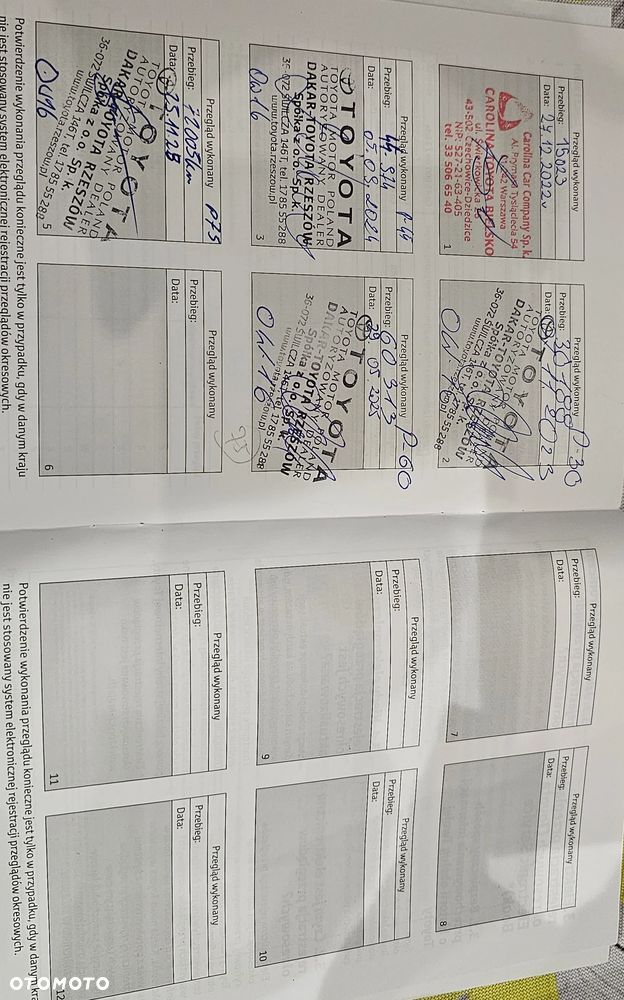 Przegląd wykonany
Przebieg: 15023
Data: 27.12.2022
Carolina Car Company Sp. k.
Al. Prymasa Tysiąclecia 54
Warszawa
CAROLINA TOYOTA BIELSKO
43-502 Czechowice-Dziedzice
NIP: 527-21-63-405
tel. 33 506 65 40
1
Przegląd wykonany P-30
Przebieg:
Data:
TOYOTA
TOYOTA MOTOR
DAKAR-TOYOTA RZESZÓW
Spółka z o.o. Sp. k.
2
Przegląd wykonany
Przebieg: 44.924 P-44
Data: 05.09.2024
TOYOTA
TOYOTA MOTOR POLAND
AUTORYZOWANY DEALER
DAKAR-TOYOTA RZESZÓW
Spółka z o.o. Sp. k.
36-072 ŚWILCZA 146T, tel. 1785 55 288
www.toyota.rzeszow.pl
OW16
3
Przegląd wykonany P-60
Przebieg: 60 313
Data: 29.05.2025
TOYOTA
TOYOTA MOTOR
AUTORYZOWANY
DAKAR-TOYOTA RZESZÓW
Spółka z o.o. Sp. k.
36-072 ŚWILCZA tel. 1785 55 288
OW16
75
Przegląd wykonany P75
Przebieg:
Data: 25.11.25
TOYOTA
TOYOTA MOTOR POLAND
DAKAR-TOYOTA RZESZÓW
Spółka z o.o. Sp. k.
36-072 ŚWILCZA 146T tel. 1785 55 288
www.toyota.rzeszow.pl
OW16
5
Przegląd wykonany
Przebieg:
Data:
6
Potwierdzenie wykonania przeglądu konieczne jest tylko w przypadku, gdy w danym kraju
nie jest stosowany system elektronicznej rejestracji przeglądów okresowych.
Przegląd wykonany
Przebieg:
Data:
7
Przegląd wykonany
Przebieg:
Data:
8
Przegląd wykonany
Przebieg:
Data:
9
Przegląd wykonany
Przebieg:
Data:
10
Przegląd wykonany
Przebieg:
Data:
11
Przegląd wykonany
Przebieg:
Data:
12
Potwierdzenie wykonania przeglądu konieczne jest tylko w przypadku, gdy w danym
nie jest stosowany system elektronicznej rejestracji przeglądów okresowych.
OTOMOTO